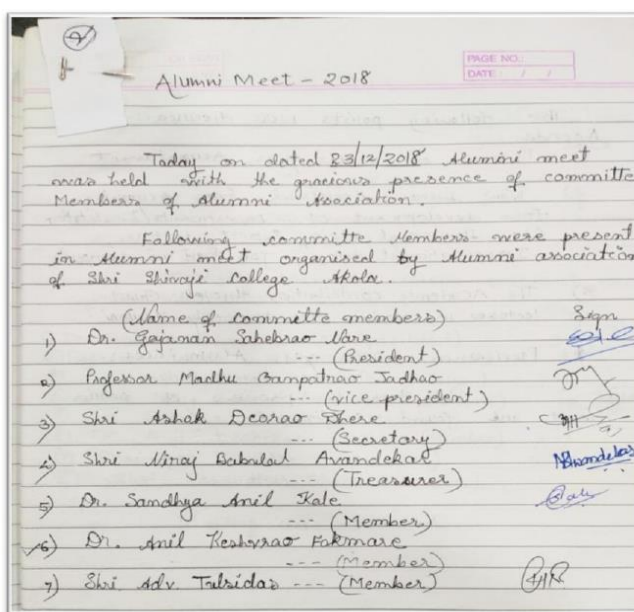 2
PAGE NO.:
DATE: / /
Alumni Meet - 2018
Today on dated 23/12/2018 Alumini meet
was held with the gracious presence of committe
Members of Alumni Association.
Following committe Members were present
in Alumni meet organised by Alumni association
of Shri Shivaji College Akola.
(Name of committe members) Sign
1) Dr. Gajanan Sahebrao Nare
--- (President)
2) Professor Madhu Ganpatrao Jadhao
--- (vice president)
3) Shri Ashok Deorao Dhere
--- (Secretary)
4) Shri Niraj Babulal Avandekar NBwandekar
--- (Treasurer)
5) Dr. Sandhya Anil Kale Kale
--- (Member)
6) Dr. Anil Keshvrao Fakmare
--- (Member)
7) Shri Adv. Tulsidas --- (Member)